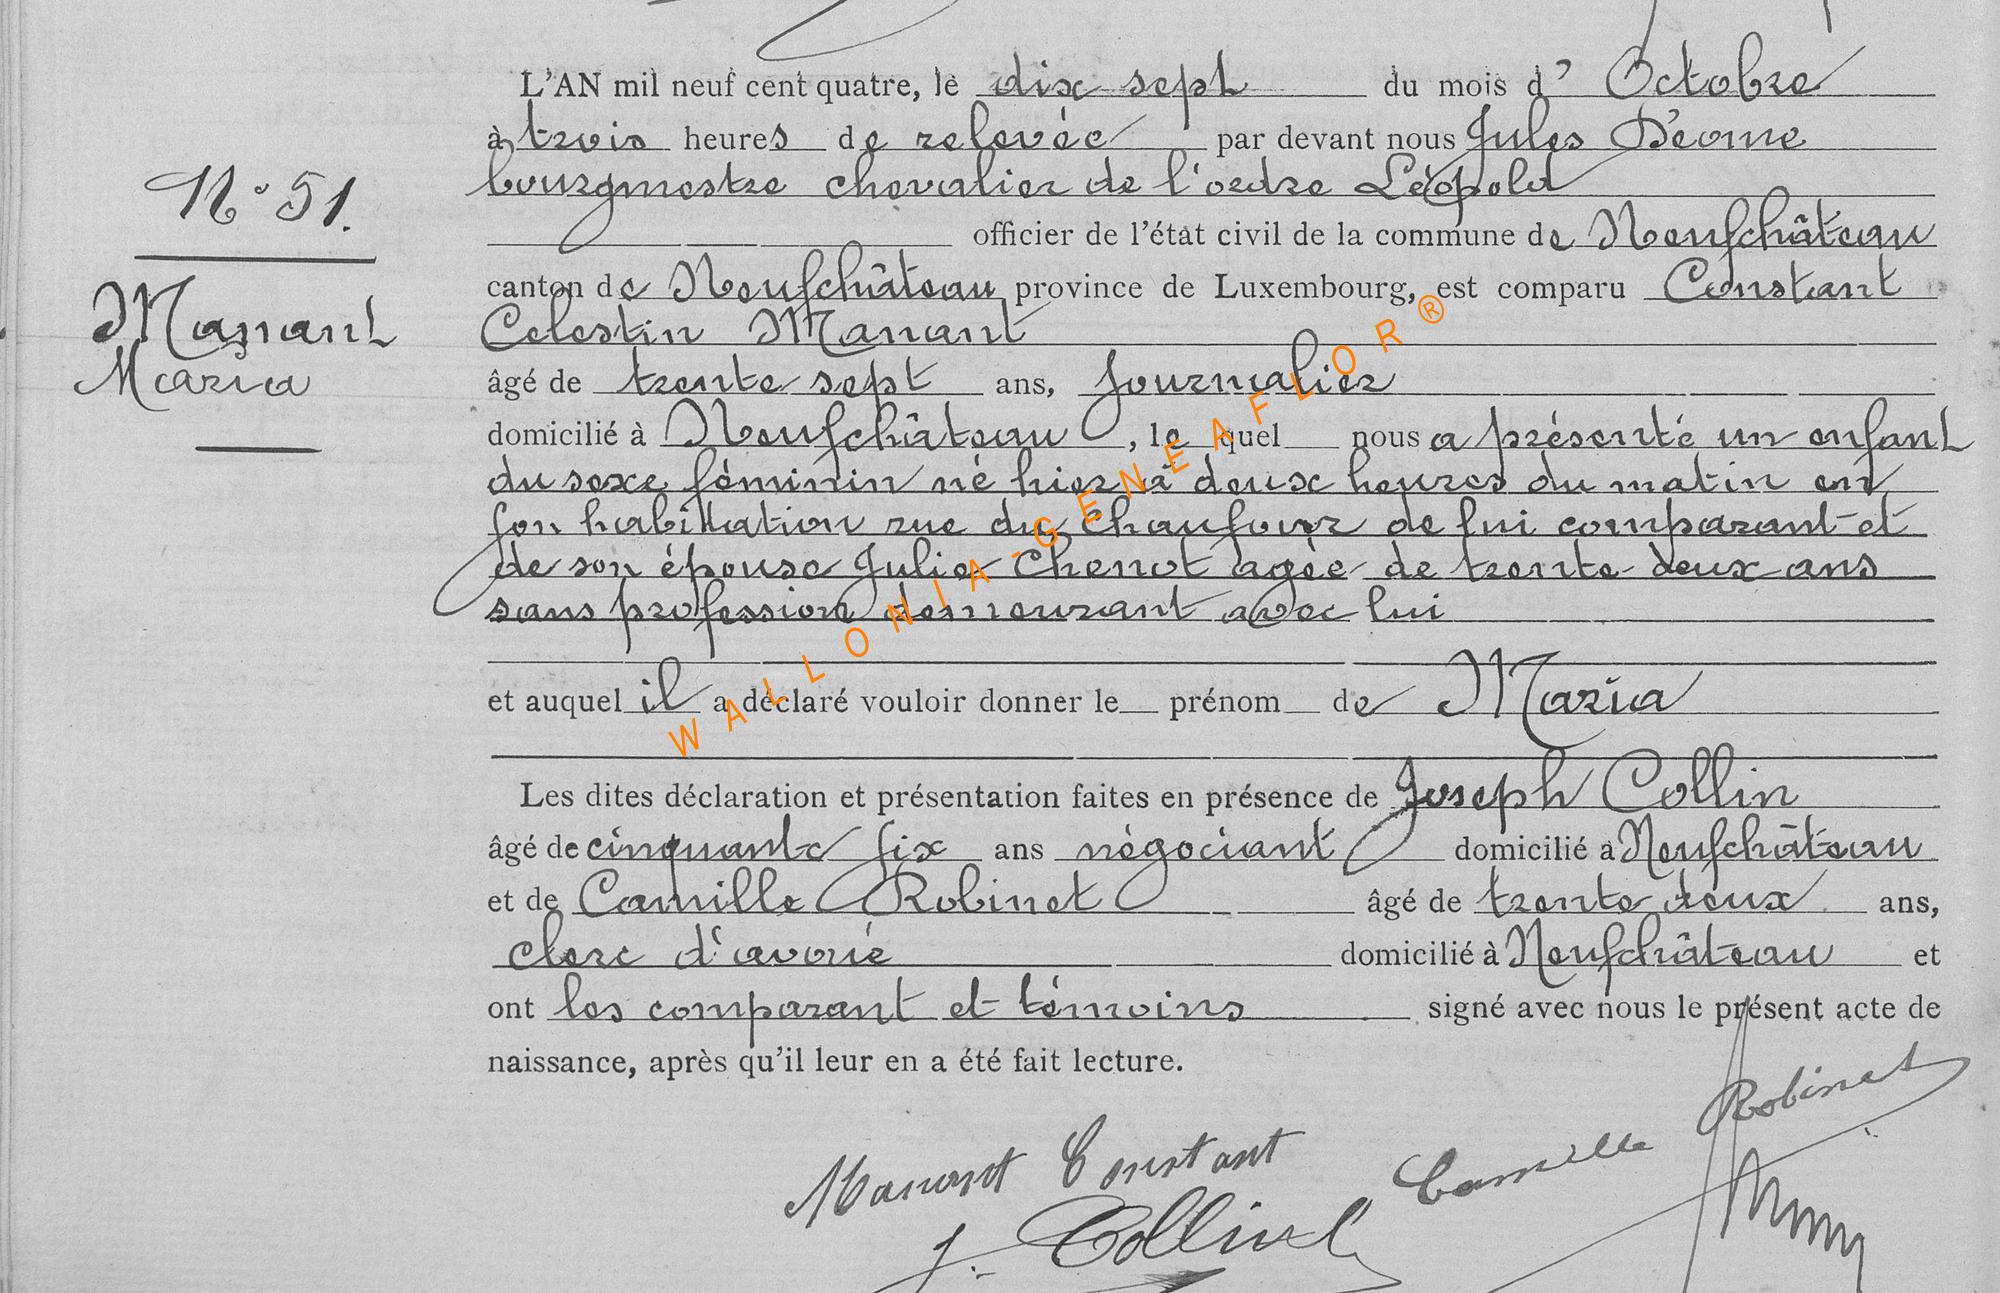 L'AN mil neuf cent quatre, le dix sept du mois d' Octobre
à trois heures de relevée par devant nous Jules Déome
bourgmestre chevalier de l'ordre Léopold
N° 51.
officier de l'état civil de la commune de Neufchâteau
canton de Neufchâteau province de Luxembourg, est comparu Constant
Manant
Celestin Manant
Maria
âgé de trente sept ans, journalier
domicilié à Neufchâteau, le quel nous a présenté un enfant
du sexe féminin né hier à deux heures du matin en
son habittation rue du Chaufour de lui comparant et
de son épouse Julie Chenot agée de trente deux ans
sans profession demeurant avec lui
et auquel il a déclaré vouloir donner le prénom de Maria
Les dites déclaration et présentation faites en présence de Joseph Collin
âgé de cinquante six ans négociant domicilié à Neufchâteau
et de Camille Robinet âgé de trente deux ans,
clerc d'avoué domicilié à Neufchâteau et
ont les comparant et témoins signé avec nous le présent acte de
naissance, après qu'il leur en a été fait lecture.
Manant Constant Camille Robinet
J. Collin
WALLONIA-GENEAFLOR®